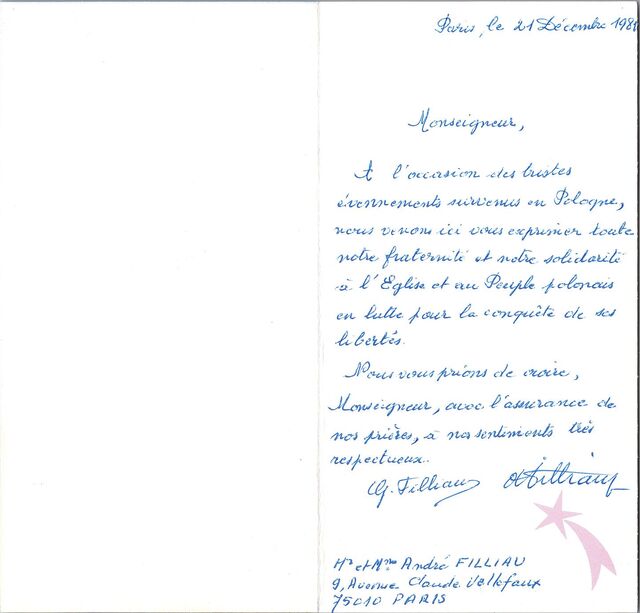 Paris, le 21 Décembre 1981
Monseigneur,
A l'occasion des tristes
évennements survenus en Pologne,
nous venons ici vous exprimer toute
notre fraternité et notre solidarité
à l'Eglise et au Peuple polonais
en lutte pour la conquête de ses
libertés.
Nous vous prions de croire,
Monseigneur, avec l'assurance de
nos prières, à nos sentiments très
respectueux.
G. Filliau AFilliau
Mr et Mme André FILLIAU
9, Avenue Claude Vellefaux
75010 PARIS